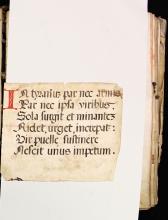 In tyranos par nec armis,
Par nec ipsa viribus;
Sola surgit et minantes
Ridet, urget, increpat:
Vir puelle sustinere
Nescit unius impetum.